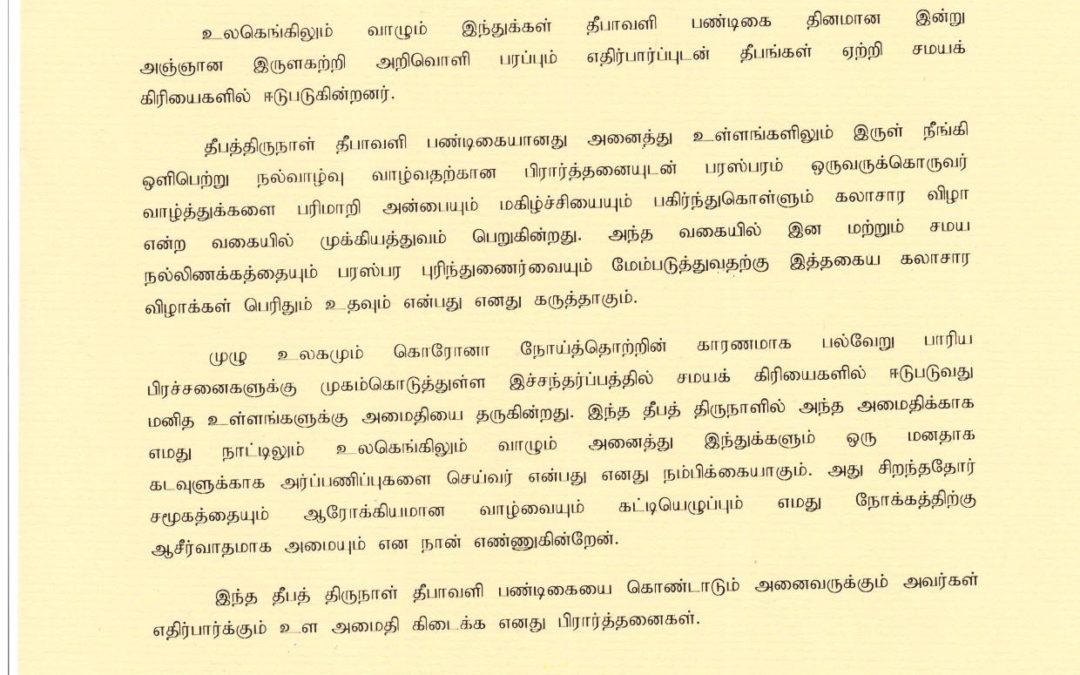 உலகெங்கிலும் வாழும் இந்துக்கள் தீபாவளி பண்டிகை தினமான இன்று
அஞ்ஞான இருளகற்றி அறிவொளி பரப்பும் எதிர்பார்ப்புடன் தீபங்கள் ஏற்றி சமயக்
கிரியைகளில் ஈடுபடுகின்றனர்.
தீபத்திருநாள் தீபாவளி பண்டிகையானது அனைத்து உள்ளங்களிலும் இருள் நீங்கி
ஒளிபெற்று நல்வாழ்வு வாழ்வதற்கான பிரார்த்தனையுடன் பரஸ்பரம் ஒருவருக்கொருவர்
வாழ்த்துக்களை பரிமாறி அன்பையும் மகிழ்ச்சியையும் பகிர்ந்துகொள்ளும் கலாசார விழா
என்ற வகையில் முக்கியத்துவம் பெறுகின்றது. அந்த வகையில் இன மற்றும் சமய
நல்லிணக்கத்தையும் பரஸ்பர புரிந்துணைர்வையும் மேம்படுத்துவதற்கு இத்தகைய கலாசார
விழாக்கள் பெரிதும் உதவும் என்பது எனது கருத்தாகும்.
முழு உலகமும் கொரோனா நோய்த்தொற்றின் காரணமாக பல்வேறு பாரிய
பிரச்சனைகளுக்கு முகம்கொடுத்துள்ள இச்சந்தர்ப்பத்தில் சமயக் கிரியைகளில் ஈடுபடுவது
மனித உள்ளங்களுக்கு அமைதியை தருகின்றது. இந்த தீபத் திருநாளில் அந்த அமைதிக்காக
எமது நாட்டிலும் உலகெங்கிலும் வாழும் அனைத்து இந்துக்களும் ஒரு மனதாக
கடவுளுக்காக அர்ப்பணிப்புகளை செய்வர் என்பது எனது நம்பிக்கையாகும். அது சிறந்ததோர்
சமூகத்தையும் ஆரோக்கியமான வாழ்வையும் கட்டியெழுப்பும் எமது நோக்கத்திற்கு
ஆசீர்வாதமாக அமையும் என நான் எண்ணுகின்றேன்.
இந்த தீபத் திருநாள் தீபாவளி பண்டிகையை கொண்டாடும் அனைவருக்கும் அவர்கள்
எதிர்பார்க்கும் உள அமைதி கிடைக்க எனது பிரார்த்தனைகள்.